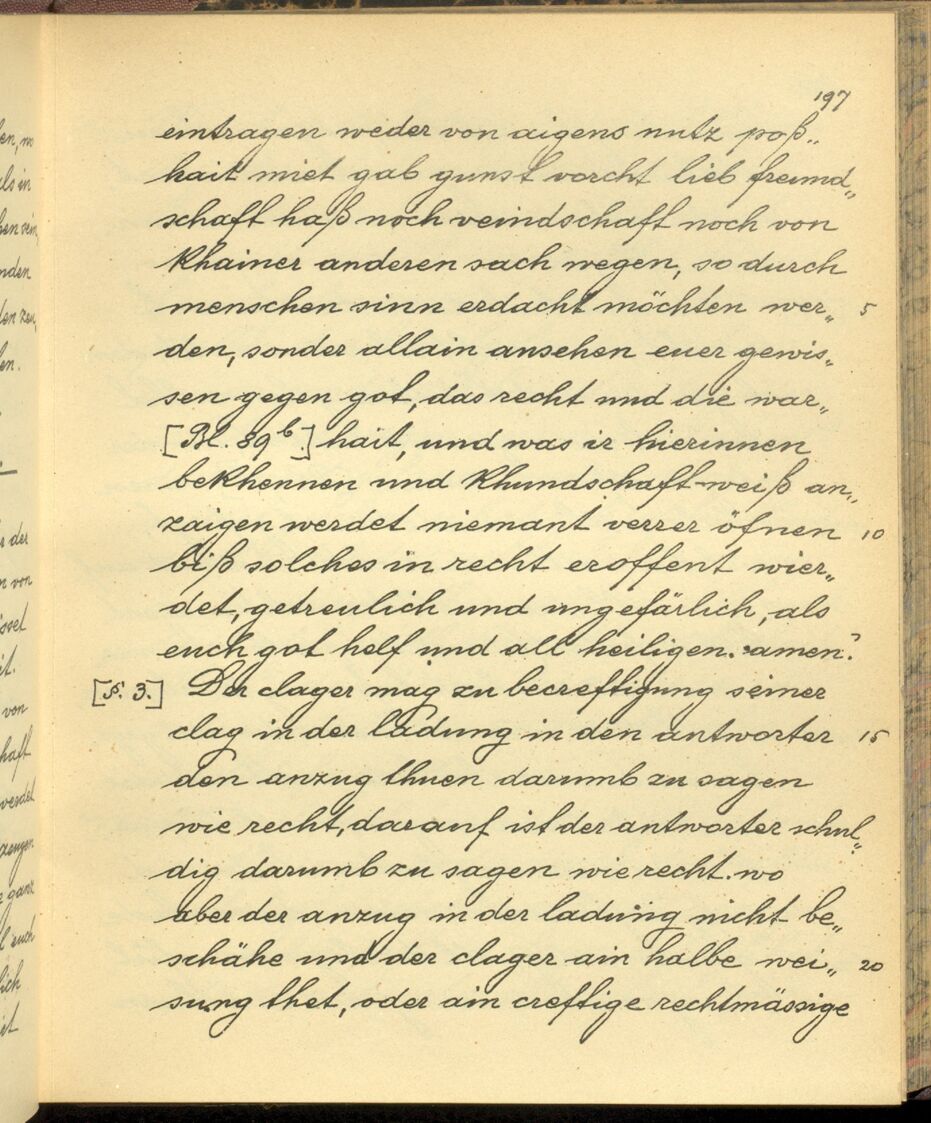 197
eintragen weder von aigens nutz poß„
hait miet gab gunst vorcht lieb freund„
schaft haß noch veindschaft noch von
khainer anderen sach wegen, so durch
menschen sinn erdacht möchten wer„ 5
den, sonder allain ansehen euer gewis„
sen gegen got, das recht und die war„
[Bl. 89 b.] hait, und was ir hierinnen
bekhennen und khundschaft weiß an„
zaigen werdet niemant verrer öfnen 10
biß solches in recht eroffent wier„
det, getreulich und ungefärlich, als
euch got helf und all heiligen. amen.?
[§. 3.] Der clager mag zu becreftigung seiner
clag in der ladung in den antworter 15
den anzug thuen darumb zu sagen
wie recht, darauf ist der antworter schul„
dig darumb zu sagen wie recht. wo
aber der anzug in der ladung nicht be„
schähe und der clager ain halbe wei„ 20
sung thet, oder ain creftige rechtmässige